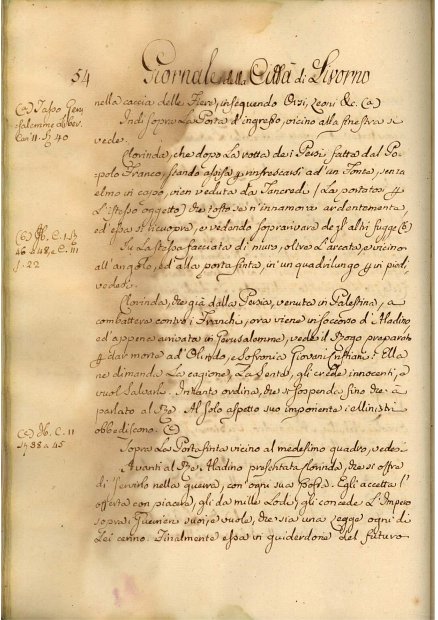 54 Giornale della Città di Livorno
(a) Tasso Geru-
salemme Liber.
Can: II. St. 40
nella caccia delle Fiere, inseguendo Orsi, Leoni &c. (a)
Indi sopra la Porta d'ingresso, vicino alla finestra si
vede.
Clorinda, che dopo la rotta dei Persi, fatta dal Po-
polo Franco, stando assisa p rinfrescarsi ad un Fonte, senza
elmo in capo, vien veduta da Tancredi (La portatosi p
L'istesso oggetto) che tosto se n'innamora ardentemente,
ed essa si ricuopre, e vedendo sopravivare degl'altri fugge (b)
(b) Ib. C. I. St.
46 a 48, e C. III
St. 22
Su la stessa facciata di muro, oltre L'arcata, e vicino
all'angolo, ed alla porta finta, in un quadrilungo p in piedi
vedesi.
Clorinda, che già dalla Persia, venuta in Palestina, a
combattere contro i Franchi, ora viene in soccorso d'Aladino
ed appena arrivata in Gerusalemme, vede il Rogo preparato
p dar morte ad Olindo, e Sofronia Giovani Cristiani: Ella
ne dimanda La cagione, La sente, gli crede innocenti, e
vuol Salvarli. Intanto ordina, che si sospenda fino che à
parlato al Re. Al solo aspetto suo imponente i Ministri
obbediscono. (c)
(c) Ib. C. II
St. 38 a 45
Sopra La Porta finta vicino al medesimo quadro, vedesi
Avanti al Re Aladino presentata Clorinda, che si offre
di servirlo nella guerra, con ogni sua possa. Egli accetta l'
offerta con piacere, gli da mille Lodi, gli concede L'Impero
sopra i Guerrieri suoi, e vuole, che sia una Legge ogni di
Lei cenno. Finalmente essa in guiderdone del futuro